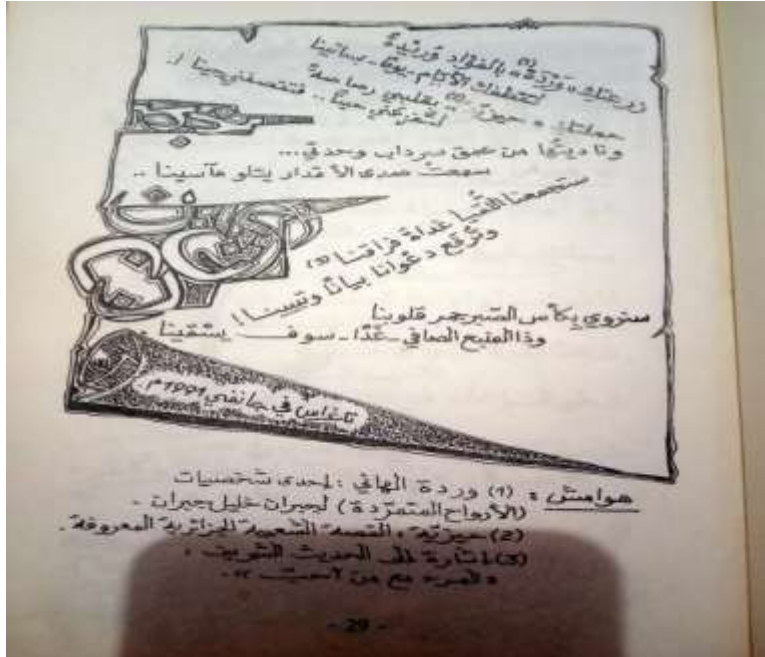 زرعتك « وَرْدَة » (1) بالفؤاد وريدة
لتقطفك الأيام - يومًا - بساتينا
حملتك « حيزيّة » (2) بقلبي رصاصة
لتفرغني حينًا .. فتقصفني حينا !.
وناديتُها من عمق سرداب وحدتي...
سمعتُ صدى الأقدار يتلو مآسينا ..
ستجمعنا اللُّقيا غداة فراقنا (3)
وتُرفع دعوانا بيانًا وتبيينا !
سنروي بكأس الصّبر جمر قلوبنا
وذا المنبع الصافي - غدًا - سوف يسقينا .
في جانفي 1991م
هوامش : (1) وردة الهاني : إحدى شخصيات
(الأرواح المتمرّدة) لجبران خليل جبران .
(2) حيزيّة : القصة الشعبية الجزائرية المعروفة .
(3) إشارة إلى الحديث الشريف :
« المرء مع من أحبّ » .
- 29 -